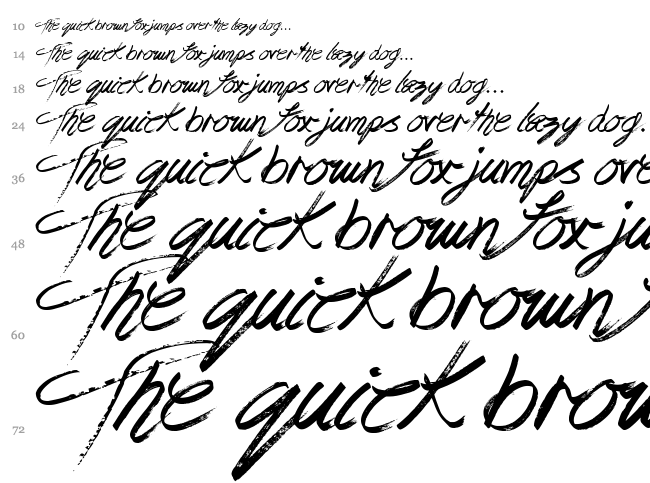 10 The quick brown fox jumps over the lazy dog...
14 The quick brown fox jumps over the lazy dog...
18 The quick brown fox jumps over the lazy dog...
24 The quick brown fox jumps over the lazy dog.
36 The quick brown fox jumps ove
48 The quick brown fox ju
60 The quick brown
72 The quick brow